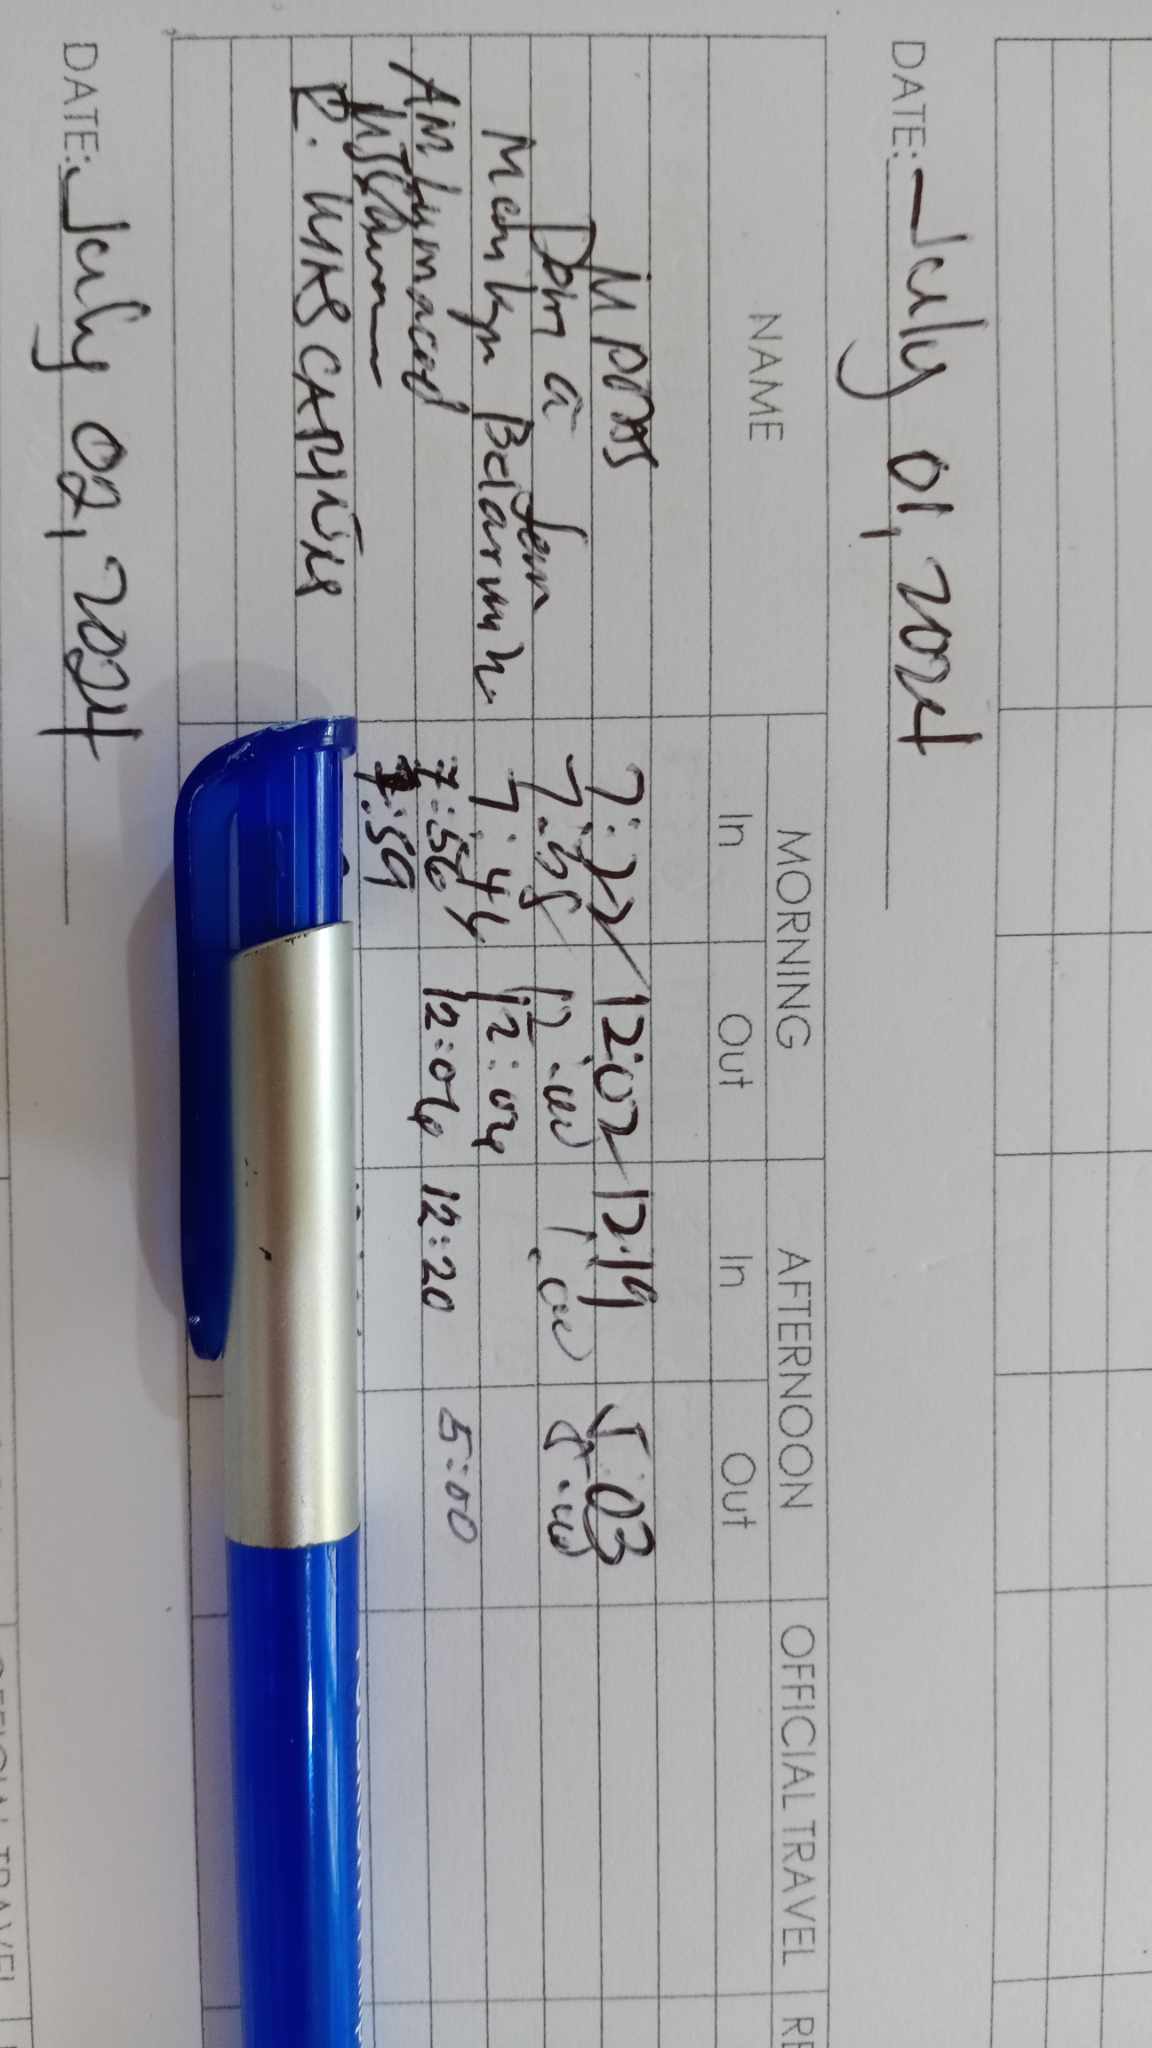 DATE: July 01, 2024
NAME MORNING AFTERNOON OFFICIAL TRAVEL RE
In Out In Out
7:27 12:02 12:19 5:03
Dom a Jean 7:35 12:00 1:00 5:00
Belarmin 7:44 12:04
7:56 12:06 12:20 5:00
7:59
R.
DATE: July 02, 2024
OFFICIAL TRAVEL